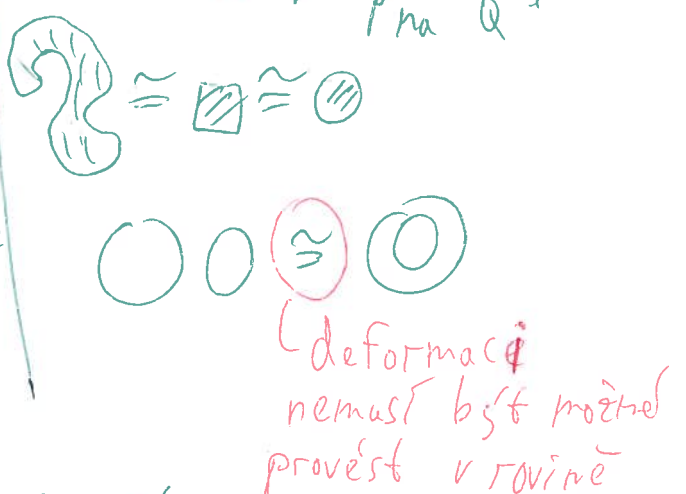 p na Q
≅ ≅
≅
deformaci
nemusí být možné
provést v rovině